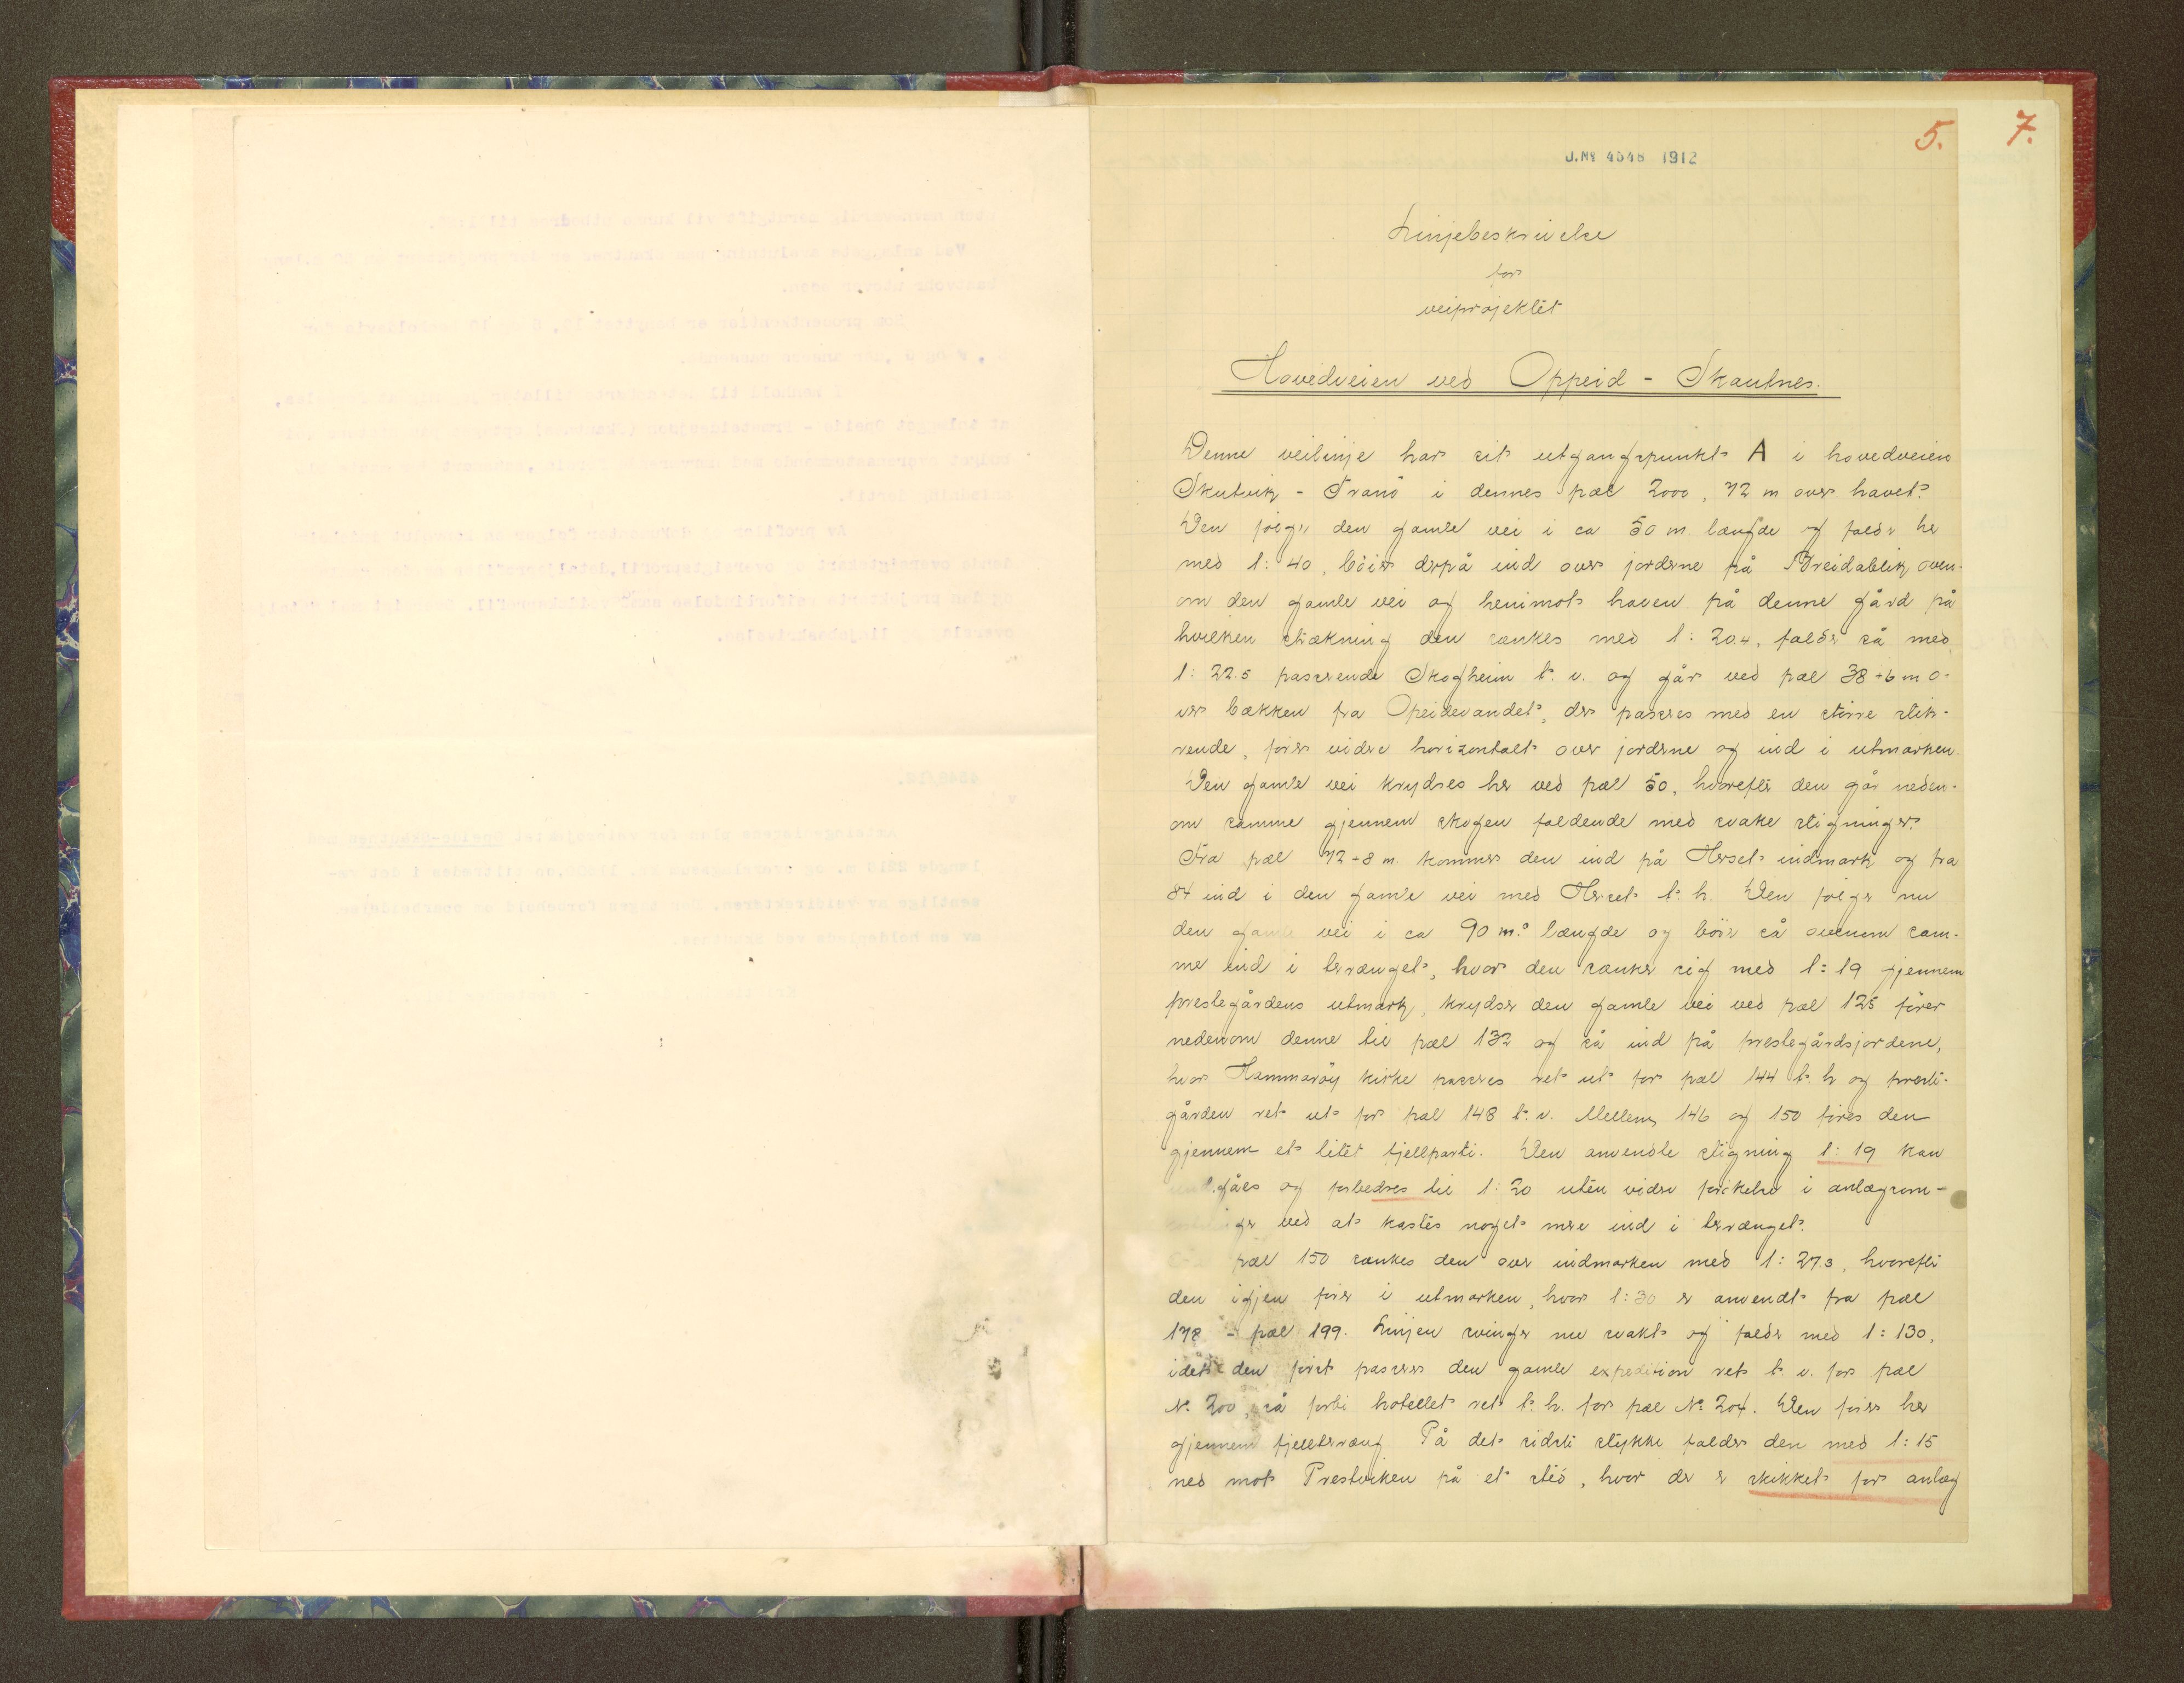 5. 7.
J.№ 4548 1912
Linjebeskrivelse
for
veiprojektet
Hovedveien ved Oppeid - Skautnes.
Denne veilinje har sit utgangspunkt A i hovedveien
Skutvik - Tranö i dennes pæl 2000, 72 m over havet.
Den følger den gamle vei i ca 50 m længde og falder her
med 1:40, böier derpå ind over jorderne på Breidablik oven-
om den gamle vei og henimot haven på denne gård på
hvilken strækning den sænkes med 1:20.4, falder så med
1:22.5 passerende Skogheim t.v. og går ved pæl 38+6 m o-
ver bækken fra Opeidevandet, der passeres med en större stik-
rende, förer videre horizontalt over jorderne og ind i utmarken.
Den gamle vei krydses her ved pæl 50, hvorefter den går neden-
om samme gjennem skogen faldende med svake stigninger.
Fra pæl 72+8 m. kommer den ind på Hersets indmark og fra
84 ind i den gamle vei med Herset t.h. Den følger nu
den gamle vei i ca 90 m. længde og böier så ovenom sam-
me ind i terrænget, hvor den sænker sig med 1:19 gjennem
prestegårdens utmark, krydser den gamle vei ved pæl 125 förer
nedenom denne til pæl 132 og så ind på prestegårdsjordene,
hvor Hammaröy kirke passeres ret ut for pæl 144 t.h og preste-
gården ret ut for pæl 148 t.v. Mellem 146 og 150 föres den
gjennem et litet fjellparti. Den anvendte stigning 1:19 kan
undgåes og forbedres til 1:20 uten videre forökelse i anlægsom-
ved at kastes noget mere ind i terrænget.
pæl 150 sænkes den over indmarken med 1:27.3, hvorefter
den igjen förer i utmarken, hvor 1:30 er anvendt fra pæl
178 - pæl 199. Linjen svinger nu svakt og falder med 1:130,
idet den först passerer den gamle expedition ret t.v. for pæl
№ 200, så forbi hotellet ret t.h. for pæl № 204. Den förer her
gjennem fjellterræng. På det sidste stykke falder den med 1:15
ned mot Prestviken på et sted, hvor der er skikket for anlæg